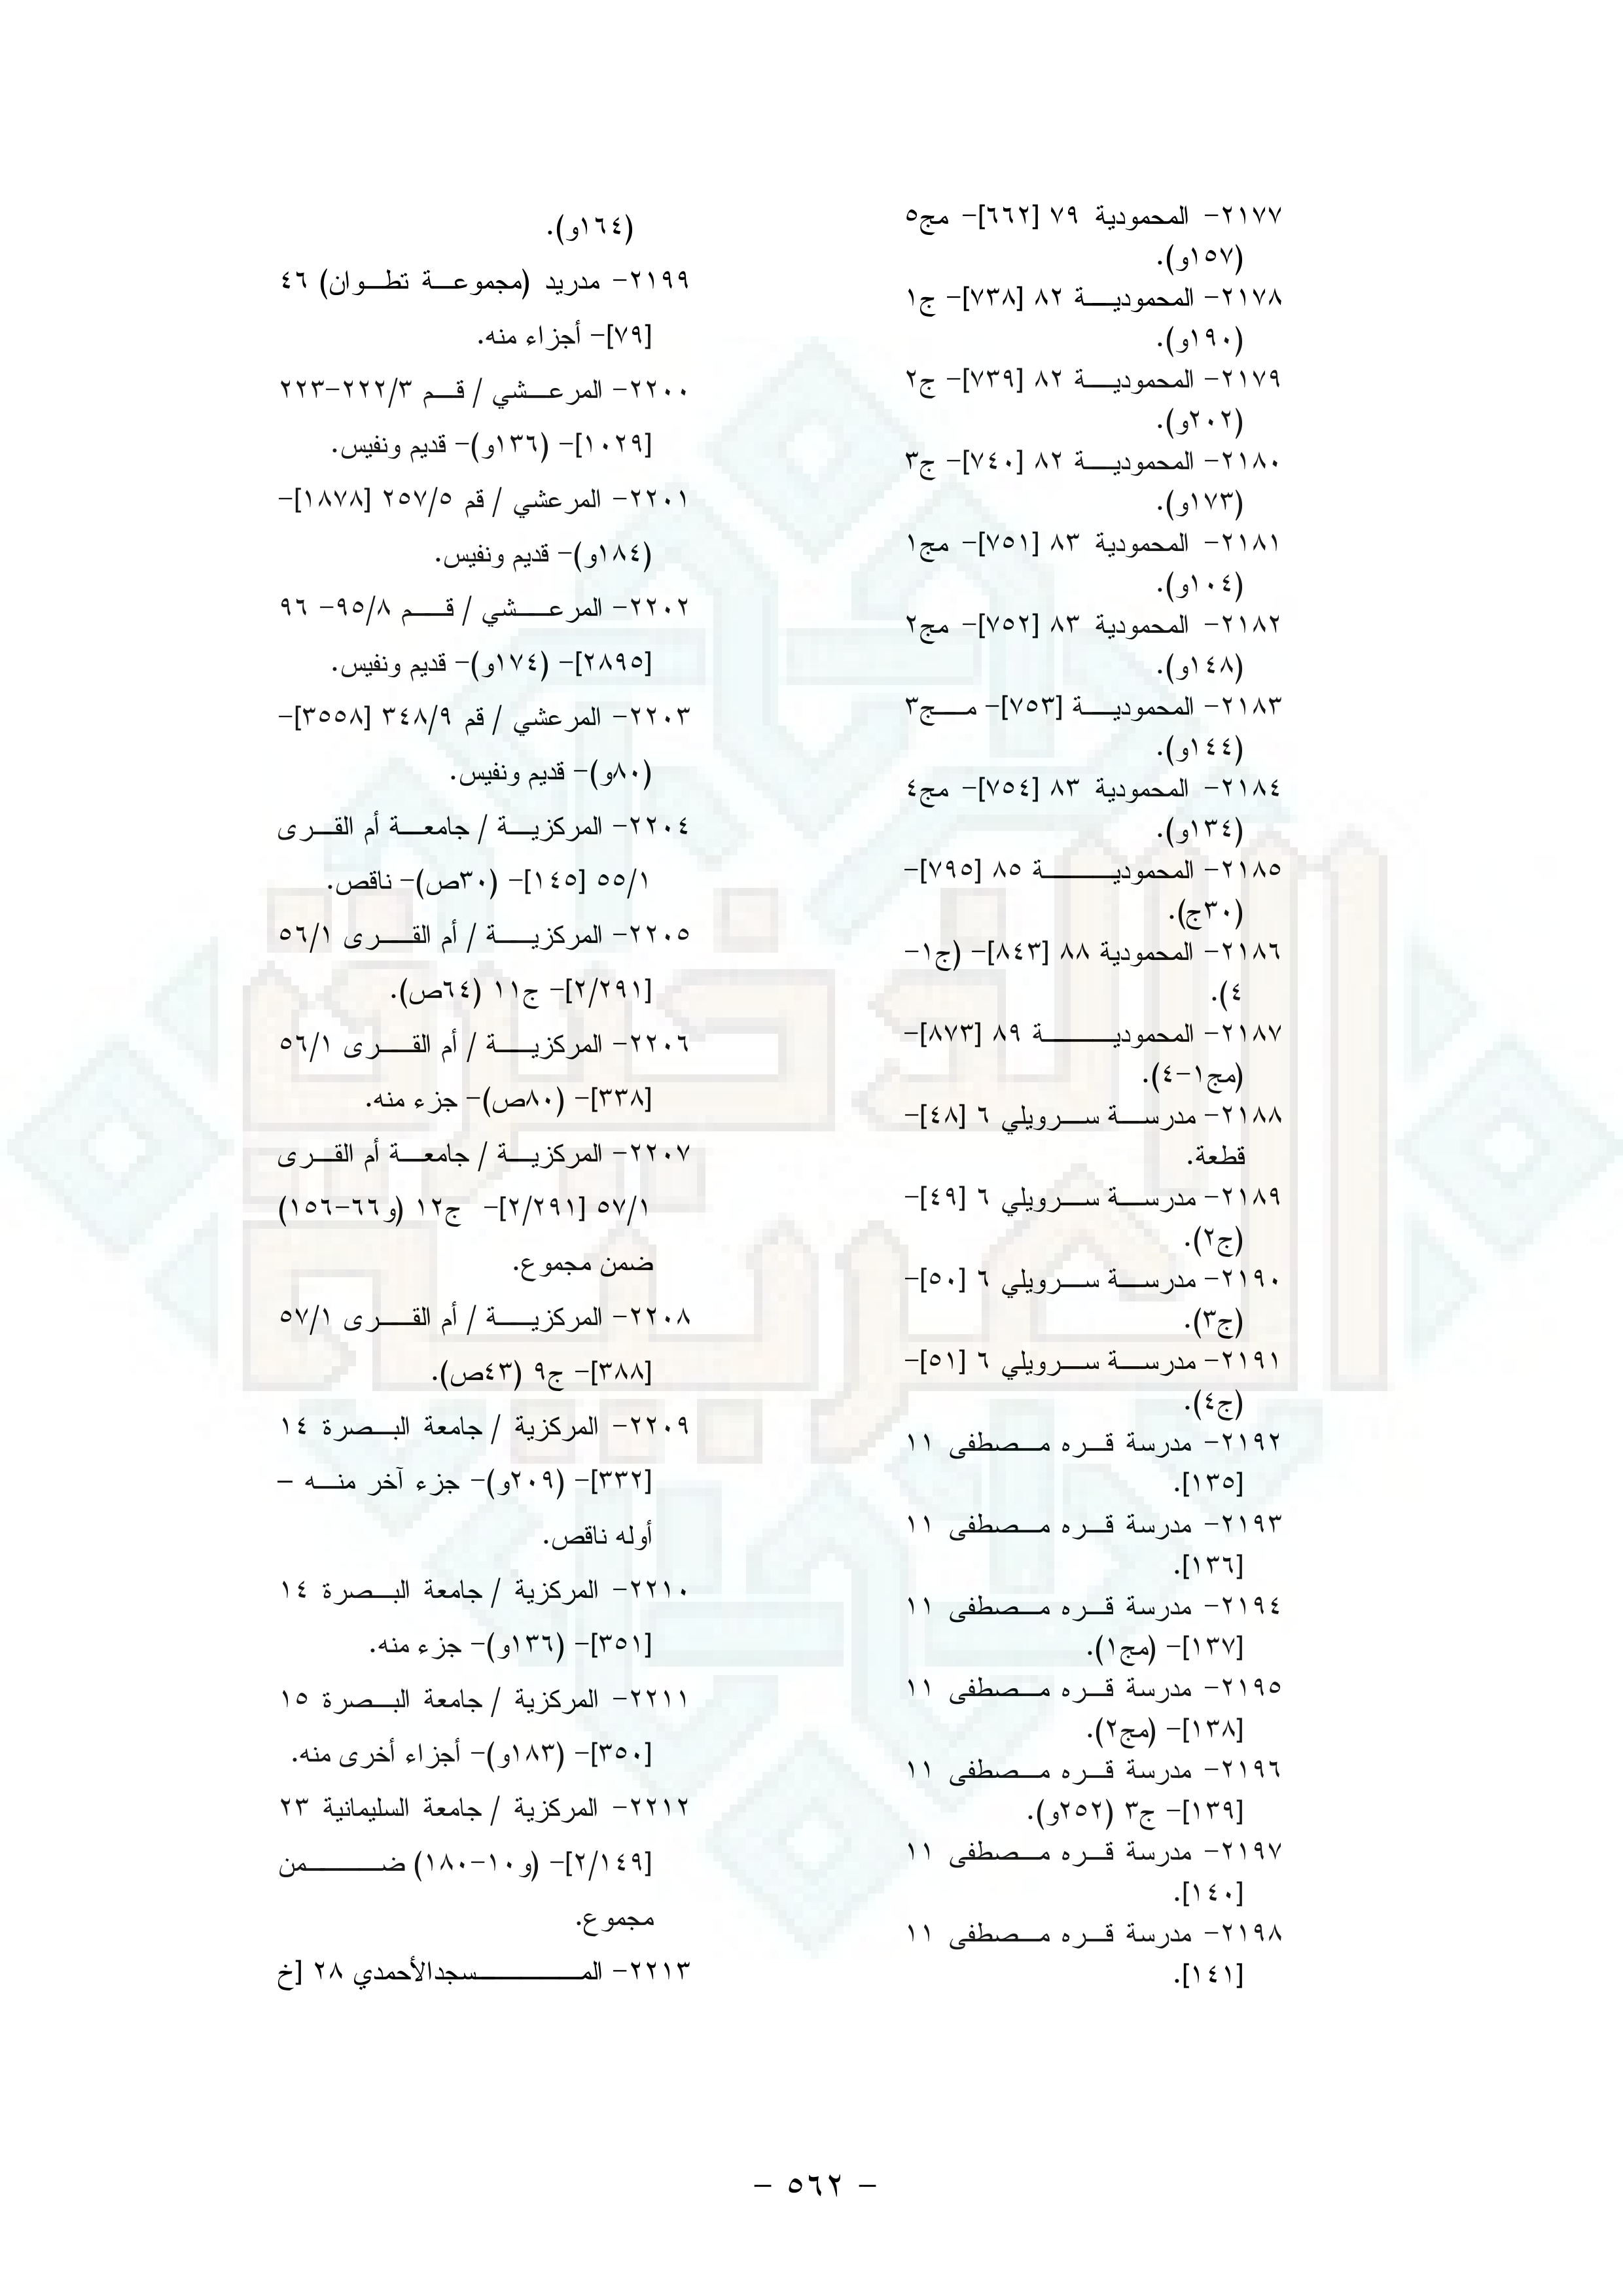 ٢١٧٧- المحمودية ٧٩ [٦٦٢]- مج٥
(١٥٧و).
٢١٧٨- المحموديـة ٨٢ [٧٣٨]- ج١
(١٩٠و).
٢١٧٩- المحموديـة ٨٢ [٧٣٩]- ج٢
(٢٠٢و).
٢١٨٠- المحموديـة ٨٢ [٧٤٠]- ج٣
(١٧٣و).
٢١٨١- المحمودية ٨٣ [٧٥١]- مج١
(١٠٤و).
٢١٨٢- المحمودية ٨٣ [٧٥٢]- مج٢
(١٤٨و).
٢١٨٣- المحموديـة [٧٥٣]- مـج٣
(١٤٤و).
٢١٨٤- المحمودية ٨٣ [٧٥٤]- مج٤
(١٣٤و).
٢١٨٥- المحموديـة ٨٥ [٧٩٥]-
(٣٠ج).
٢١٨٦- المحمودية ٨٨ [٨٤٣]- (ج١-
٤).
٢١٨٧- المحموديـة ٨٩ [٨٧٣]-
(مج١-٤).
٢١٨٨- مدرسـة سـرويلي ٦ [٤٨]-
قطعة.
٢١٨٩- مدرسـة سـرويلي ٦ [٤٩]-
(ج٢).
٢١٩٠- مدرسـة سـرويلي ٦ [٥٠]-
(ج٣).
٢١٩١- مدرسـة سـرويلي ٦ [٥١]-
(ج٤).
٢١٩٢- مدرسة قـره مـصطفى ١١
[١٣٥].
٢١٩٣- مدرسة قـره مـصطفى ١١
[١٣٦].
٢١٩٤- مدرسة قـره مـصطفى ١١
[١٣٧]- (مج١).
٢١٩٥- مدرسة قـره مـصطفى ١١
[١٣٨]- (مج٢).
٢١٩٦- مدرسة قـره مـصطفى ١١
[١٣٩]- ج٣ (٢٥٢و).
٢١٩٧- مدرسة قـره مـصطفى ١١
[١٤٠].
٢١٩٨- مدرسة قـره مـصطفى ١١
[١٤١].
(١٦٤و).
٢١٩٩- مدريد (مجموعـة تطـوان) ٤٦
[٧٩]- أجزاء منه.
٢٢٠٠- المرعـشي / قـم ٢٢٢/٣-٢٢٣
[١٠٢٩]- (١٣٦و)- قديم ونفيس.
٢٢٠١- المرعشي / قم ٢٥٧/٥ [١٨٧٨]-
(١٨٤و)- قديم ونفيس.
٢٢٠٢- المرعـشي / قـم ٩٥/٨- ٩٦
[٢٨٩٥]- (١٧٤و)- قديم ونفيس.
٢٢٠٣- المرعشي / قم ٣٤٨/٩ [٣٥٥٨]-
(٨٠و)- قديم ونفيس.
٢٢٠٤- المركزيـة / جامعـة أم القـرى
٥٥/١ [١٤٥]- (٣٠ص)- ناقص.
٢٢٠٥- المركزيـة / أم القـرى ٥٦/١
[٢/٢٩١]- ج١١ (٦٤ص).
٢٢٠٦- المركزيـة / أم القـرى ٥٦/١
[٣٣٨]- (٨٠ص)- جزء منه.
٢٢٠٧- المركزيـة / جامعـة أم القـرى
٥٧/١ [٢/٢٩١]- ج١٢ (و٦٦-١٥٦)
ضمن مجموع.
٢٢٠٨- المركزيـة / أم القـرى ٥٧/١
[٣٨٨]- ج٩ (٤٣ص).
٢٢٠٩- المركزية / جامعة البـصرة ١٤
[٣٣٢]- (٢٠٩و)- جزء آخر منـه -
أوله ناقص.
٢٢١٠- المركزية / جامعة البـصرة ١٤
[٣٥١]- (١٣٦و)- جزء منه.
٢٢١١- المركزية / جامعة البـصرة ١٥
[٣٥٠]- (١٨٣و)- أجزاء أخرى منه.
٢٢١٢- المركزية / جامعة السليمانية ٢٣
[٢/١٤٩]- (و١٠-١٨٠) ضـمن
مجموع.
٢٢١٣- المـسجدالأحمدي ٢٨ [خ
- ٥٦٢ -